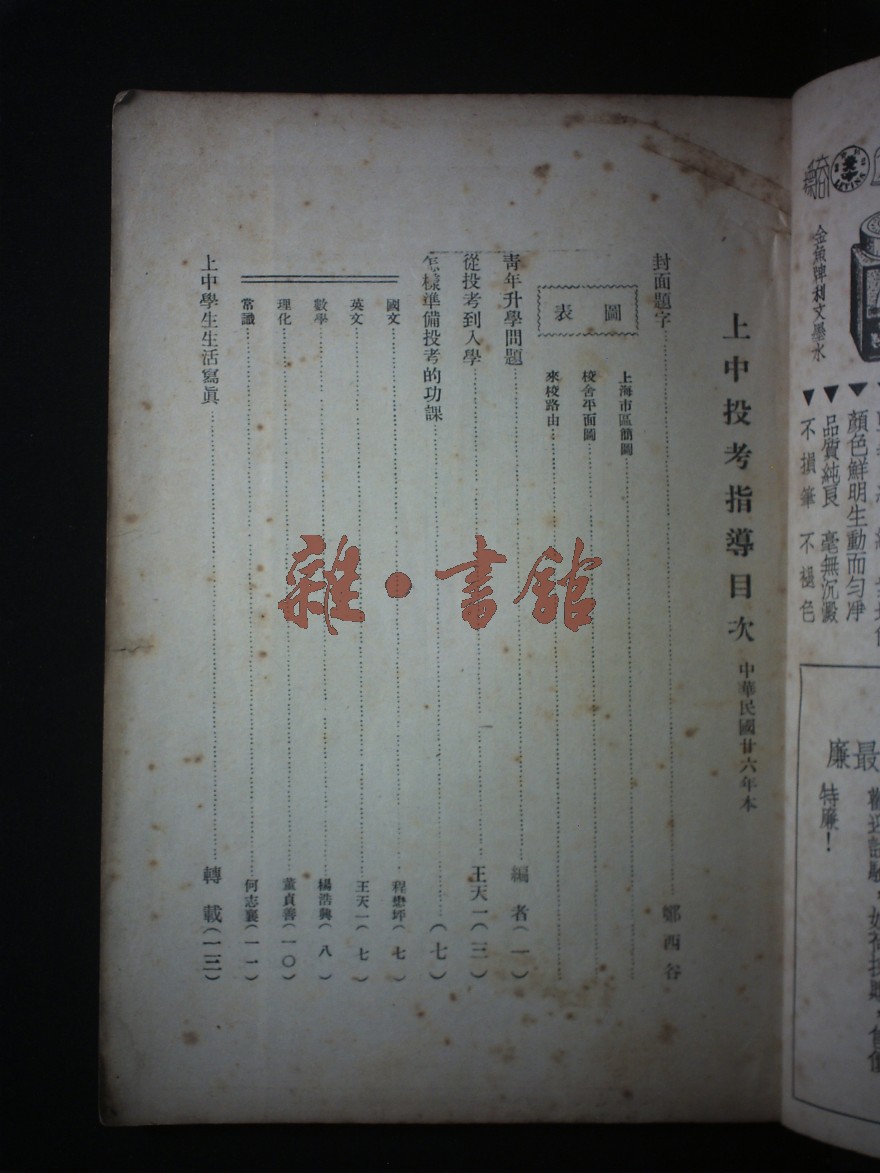 上中投考指導目次 中華民國廿六年本
封面題字 鄭西谷
圖表
上海市區簡圖
校舍平面圖
來校路由
靑年升學問題 編者(一)
從投考到入學 王天一(三)
怎樣準備投考的功課 (七)
國文 程懋坪(七)
英文 王天一(七)
數學 楊浩興(八)
理化 董貞善(一〇)
常識 何志襄(一一)
上中學生生活寫眞 轉載(一三)
雜·書館
金魚牌利文墨水
顏色鮮明生動而勻淨
品質純良 毫無沉澱
不損筆 不褪色
最廉
特廉!